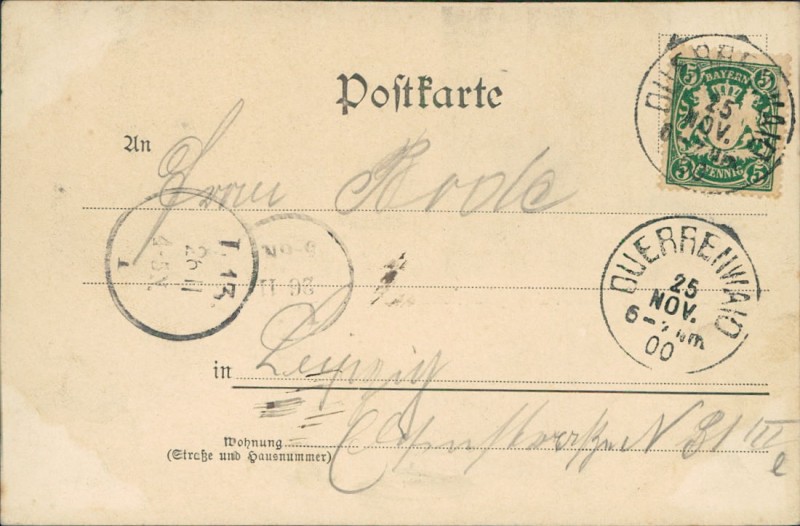 Postkarte
5 BAYERN 5
5 PFENNIG 5
25
NOV.
An
Frau Rode
DUERRENWAID
25
NOV.
6-7 Nm
00
L. 13.
26 11
4-5N
26 11
in Leipzig
Wohnung
(Straße und Hausnummer)
N 31 III